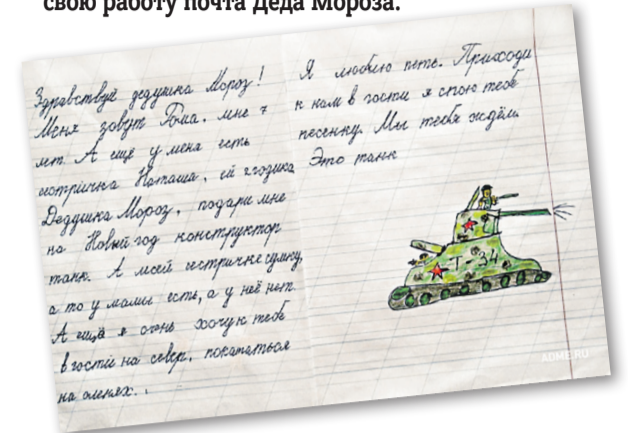 свою работу почта Деда Мороза.
Здравствуй дедушка Мороз!
Меня зовут Рома. мне 7
лет. А ещё у меня есть
сестричка Наташа, ей 2 годика
Деддушка Мороз, подари мне
на Новый год конструктор
танк. А моей сестричке сумку,
а то у мамы есть, а у неё нет.
А ещё я очень хочу к тебе
в гости на север, покататься
на оленях.
Я люблю петь. Приходи
к нам в гости я спою тебе
песенку. Мы тебя ждём.
Это танк
Т 34
ADME.RU